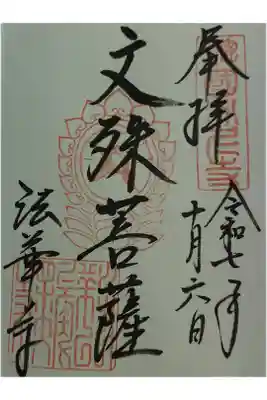 奉拝
令和七年
十月六日
文殊菩薩
法華寺